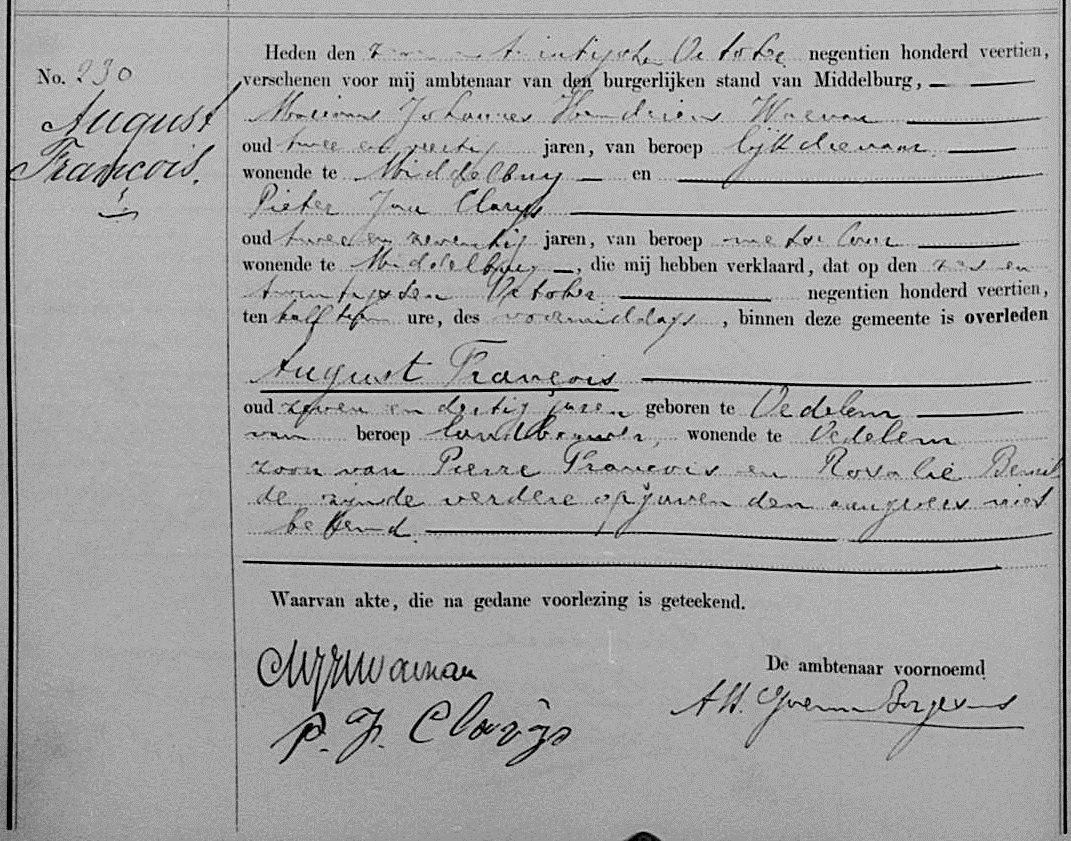 No. 230
August
François.
Heden den twintigsten October negentien honderd veertien,
verschenen voor mij ambtenaar van den burgerlijken stand van Middelburg,
Marinus Johannes Hendricus
oud twee en veertig jaren, van beroep lijkdienaar
wonende te Middelburg en
Pieter Jan Clarijs
oud twee en zeventig jaren, van beroep metselaar
wonende te Middelburg, die mij hebben verklaard, dat op den zes en
twintigsten October negentien honderd veertien,
ten half tien ure, des voormiddags, binnen deze gemeente is overleden
August François
oud zeven en dertig jaren geboren te Oedelem
van beroep landbouwer, wonende te Oedelem
zoon van Pierre François en Rosalie
de zijnde verdere opgaven den aangevers niet
bekend.
Waarvan akte, die na gedane voorlezing is geteekend.
De ambtenaar voornoemd
P. J. Clarijs